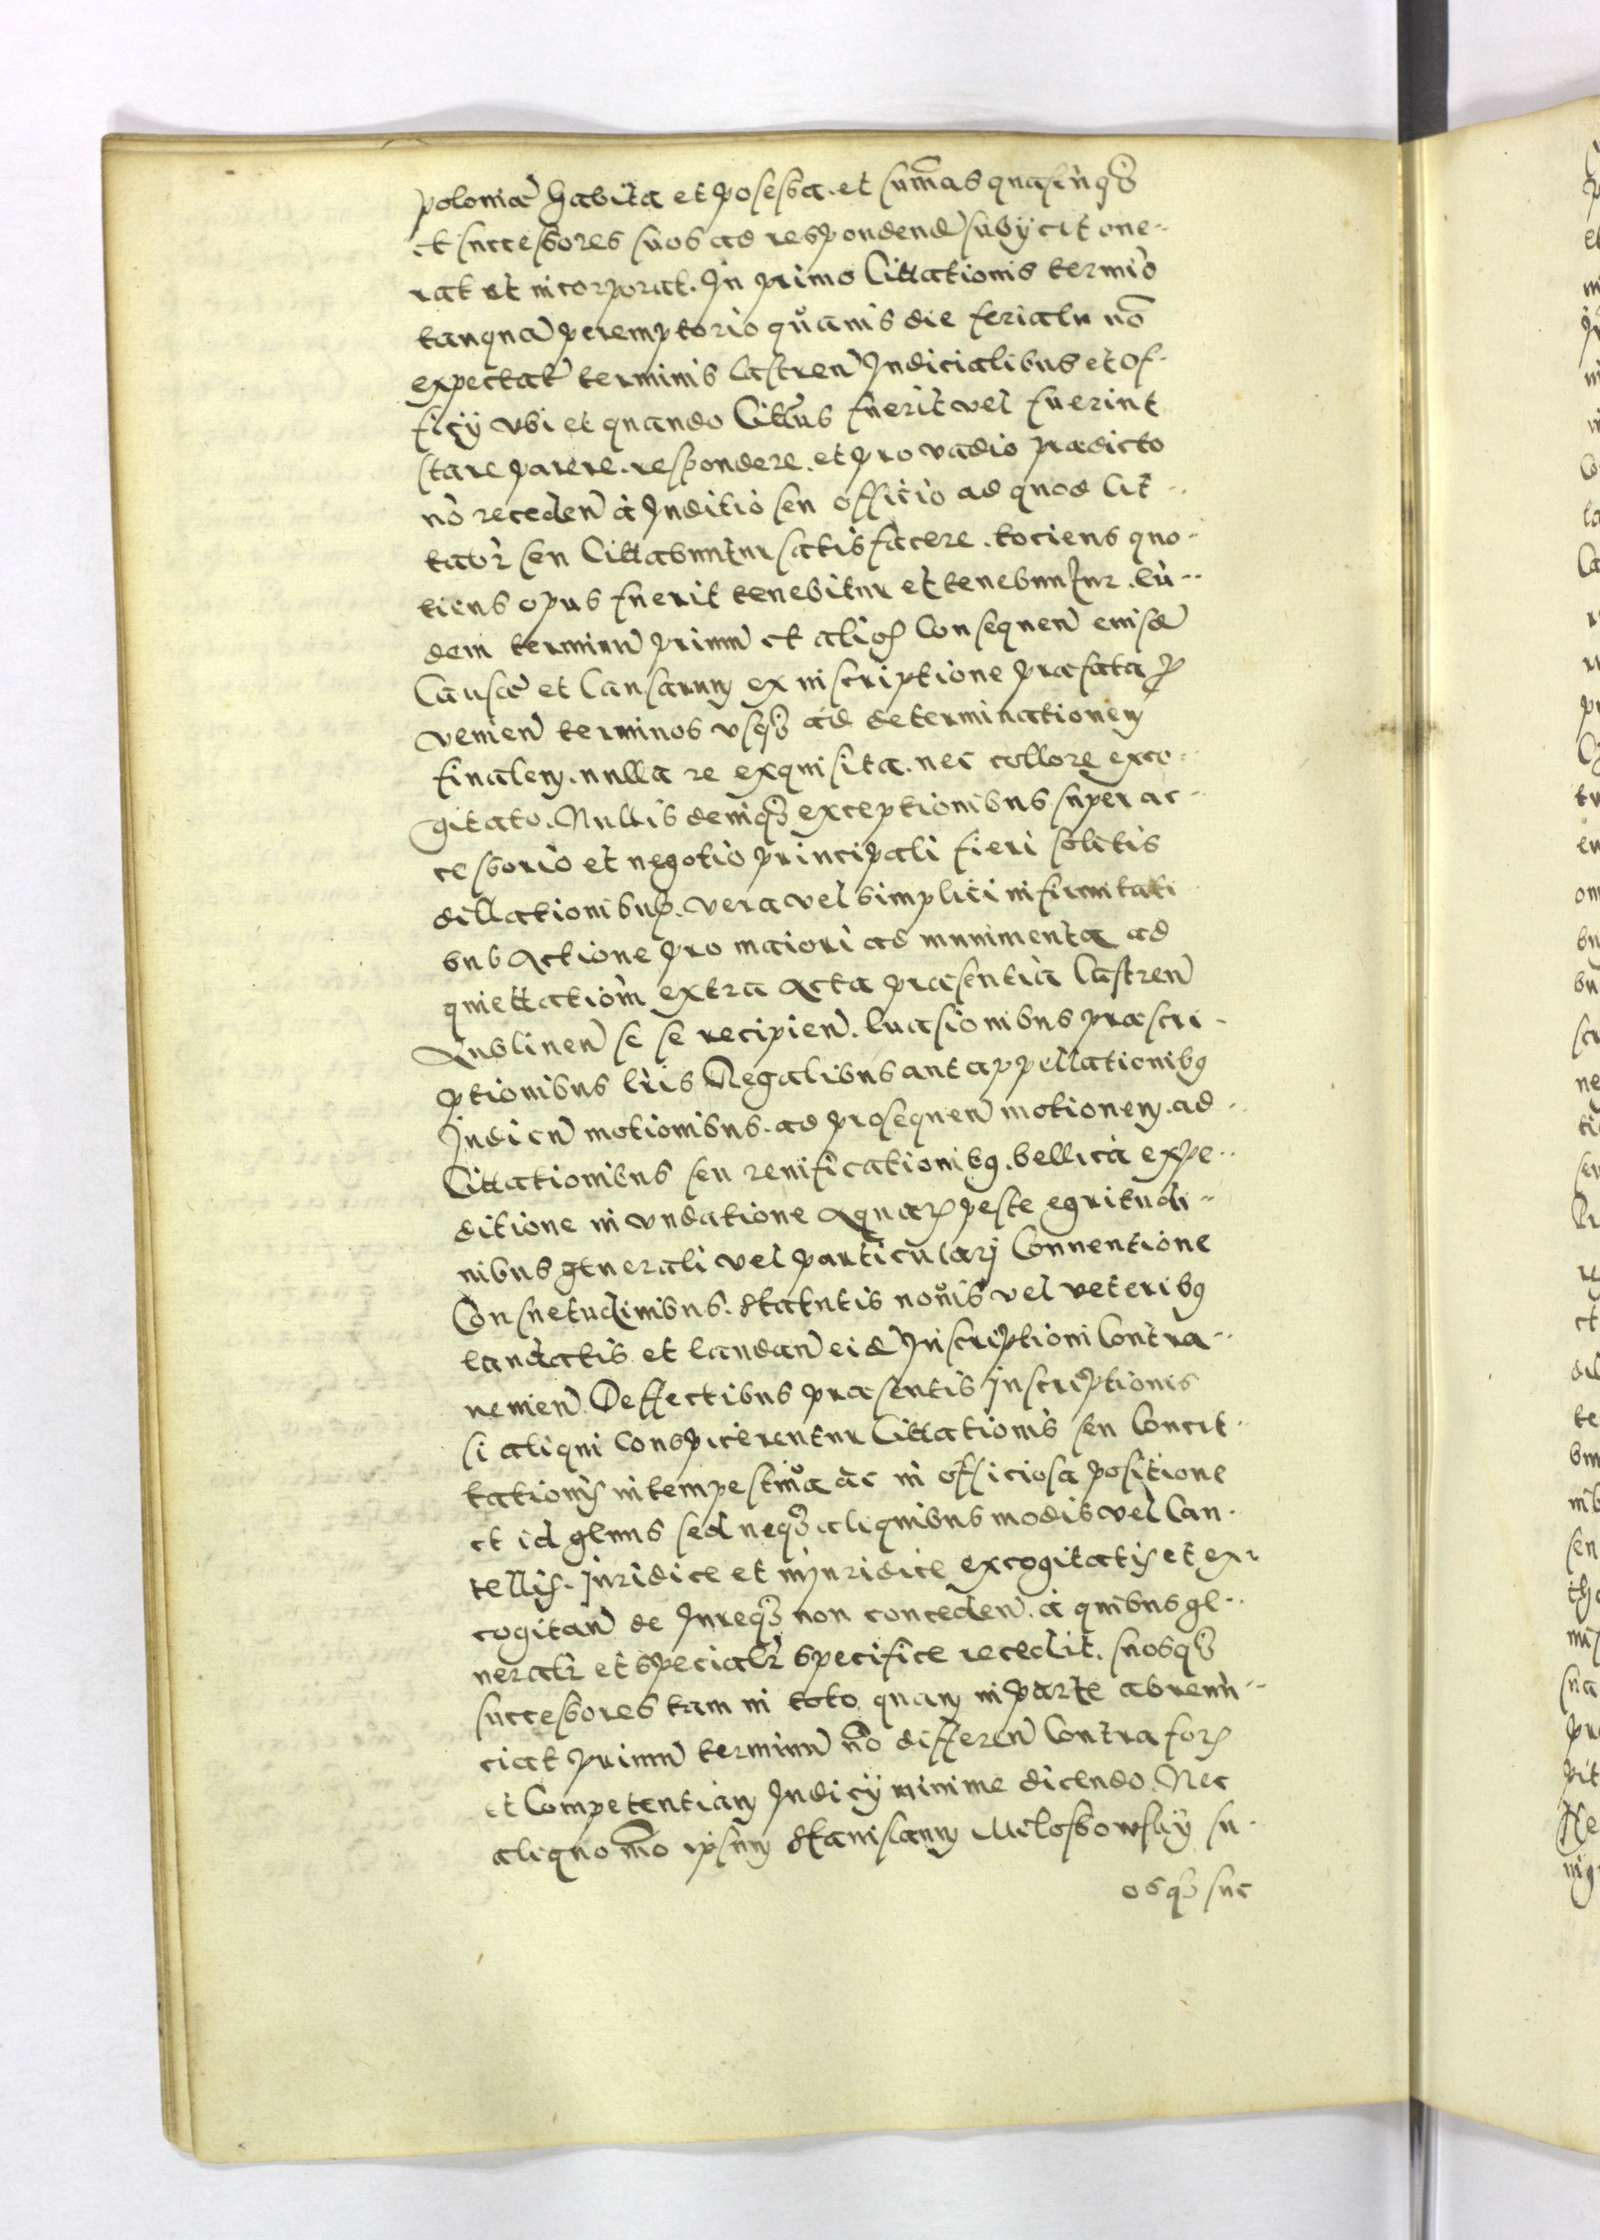 poloniæ habita et posessa. et sum̃as quaslibq3
et successores suos ad respondend̃ subÿcit one-
rat et incorporat. In primo Cittationis termio
tanquã peremptorio quãnis die feriatu nõ
expectat̃ terminis Castren̄ Judicialibus et of-
ficÿ vbi et quando Citt9us fuerit vel fuerint
stare parere. respondere. et pro vadio prædicto
nõ receden̄ à Juditio seu officio ad quod Cit-
tabr̃ seu Cittabuntur satisfacere. tociens quo-
tiens opus fuerit tenebitur et tenebuntur. Eũ-
dem terminũ primũ et alios Consequen̄ eiusd̃
Causæ et Causarum ex inscriptione præfata p
venien̄ terminos vsq3 ad determinationem
finalem. nulla re exquisita. nec collore exco-
gitato. Nullis deniq3 exceptionibus super ac-
cessorio et negotio principali fieri solitis
dillationibus. vera vel simplici infirmitati
bus Actione pro maiori ad munimenta ad
quiettatiom̃ extra Acta præsentia Castren̄
Lublinen̄ se se recipien̄. Euasionibus præscri-
ptionibus Lr̃is Regalibus aut appellationibq
Judicũ motionibus. ad prosequen̄ motionem. ad
Cittationibus seu reuificationibq. bellica expe-
ditione in vndatione Aquar̃ peste egritudi-
nibus generali vel particularj Conuentione
Consuetudinibus. Statutis nouis vel veteribq
laudatis et laudan̄ eid̃ Inscriptioni Contra-
uenien̄. Deffectibus præsentis Inscriptionis
si aliqui Conspicerentur Cittationis seu Concit-
tationis intempestiua ac in officiosa positione
et id gl̃nus sed neq3 aliquibus modis vel Cau-
tellis. Juridice et inJuridice excogitatis et ex-
cogitan̄ de Jureq3 non conceden̄. à quibus ge-
neralr̃ et specialr̃ specifice recedit. suosq3
successores tam in toto quam in parte abrenũ-
ciat primũ terminũ nõ differen̄ Contra for̃
et Competentiam Judicÿ minime dicendo. Nec
aliquo mõ ipsum Stanislaum Milossowskÿ su-
osq3 suc